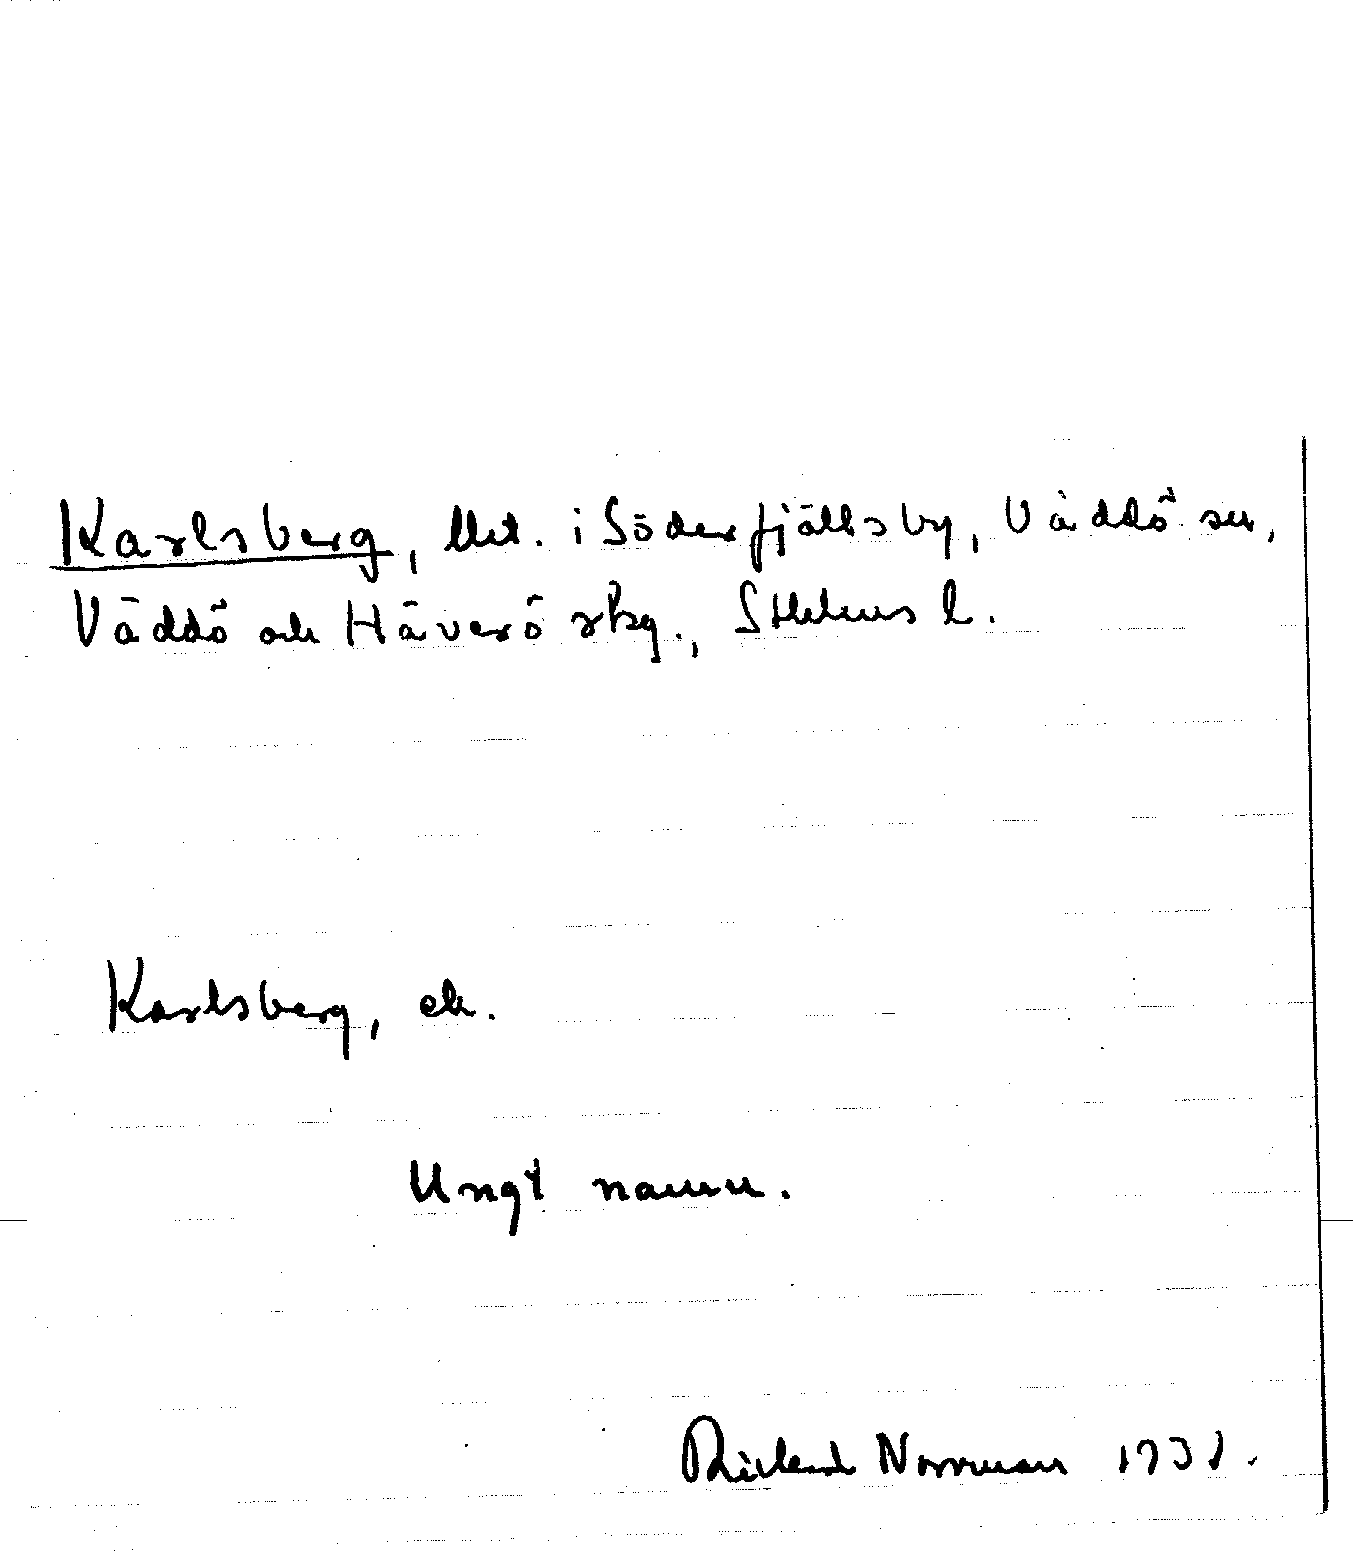 Karlsberg, lht. i Söderfjällsby, Väddö sn,
Väddö och Häverö skg., Sthlms l.
Karlsberg, ek.
Ungt namn.
Rickard Norrman